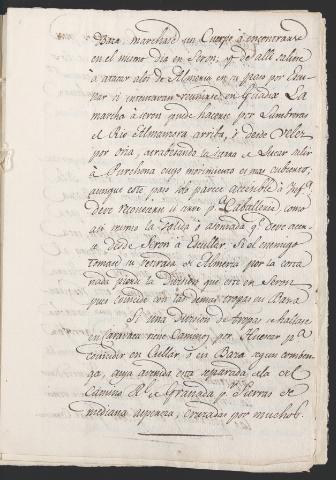 Baza, marchase un Cuerpo á encontrarse
en el mismo dia en Seron, y de alli saliese
á atacar alos de Almeria en su paso por Escu-
llar si intentaran reunirse en Guadix La
marcha á Seron puede hacerse por Lumbreras
el Rio Almanzora arriba, ó desde Velez
por Oria, atrabesando la sierra de Lucar salir
á Purchena cuyo movimiento es mas cubierto;
aunque este pais les parece accesible á Ynf.ª
deve reconocerse si para Caballeria, como
asi mismo la salida ó abenida q.e deve aver
desde Seron á Escullar. Si el enemigo
tomase su retirada de Almeria por la
nada puede la Division que esta en Seron
pues coincide con las demas tropas en Baza
Si una Division de tropas se hallase
en Caravaca tiene Caminos por Huescar p.ª
coincidir en Cullar, ó en Baza segun conben-
ga, cuya avenida esta separada ela del
Camino R.l de Granada p.r Sierras de
mediana aspereza, cruzadas por muchos.